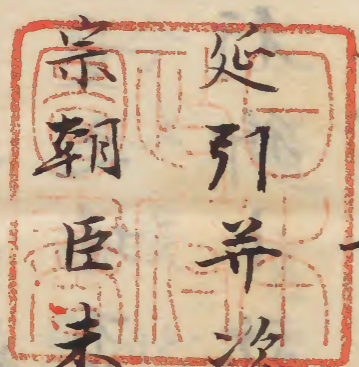 延引并次
宗朝臣未